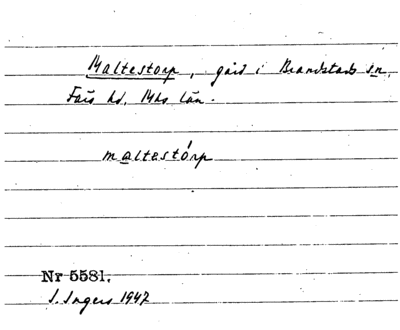 Maltestorp, gård i Brandstads sn,
Färs hd, Mhs län.
maltestórp
Nr 5581.
I. Ingers 1947